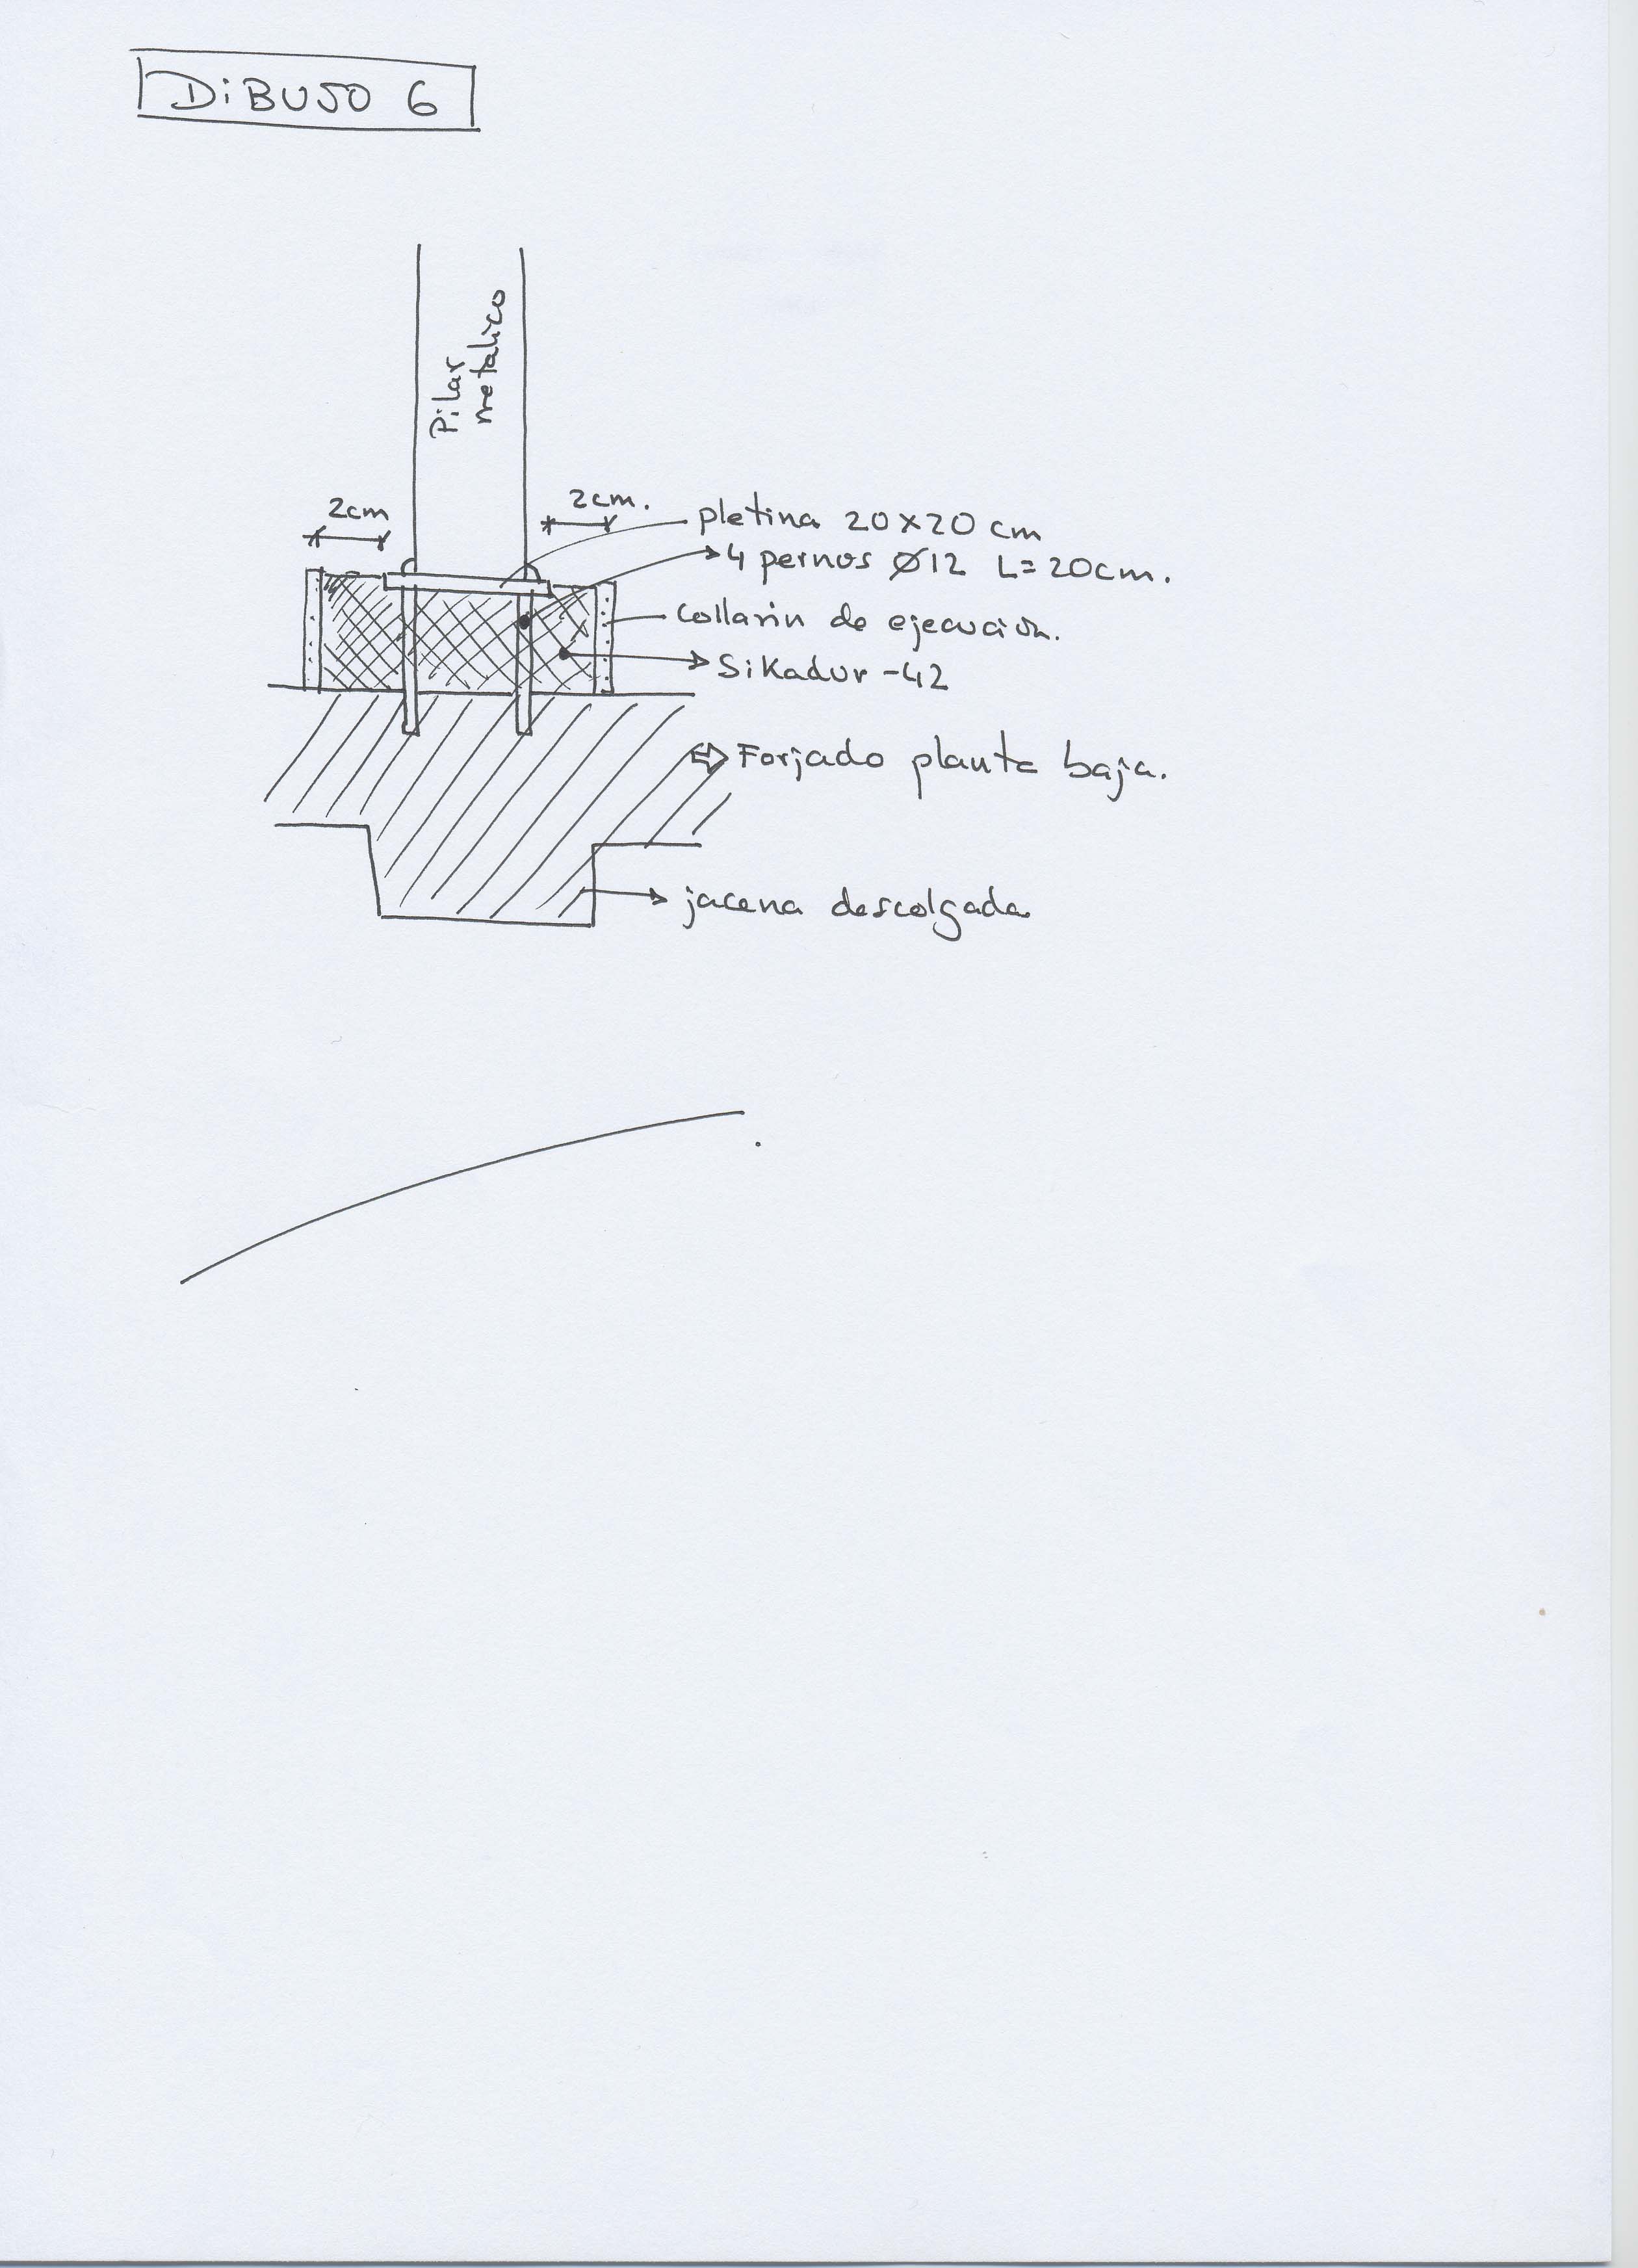 DiBUJO 6
Pilar
metalico
2cm
2cm.
pletina 20x20 cm
4 pernos Ø12 L=20cm.
collarin de ejecución.
Sikadur-42
Forjado planta baja.
jacena descolgada